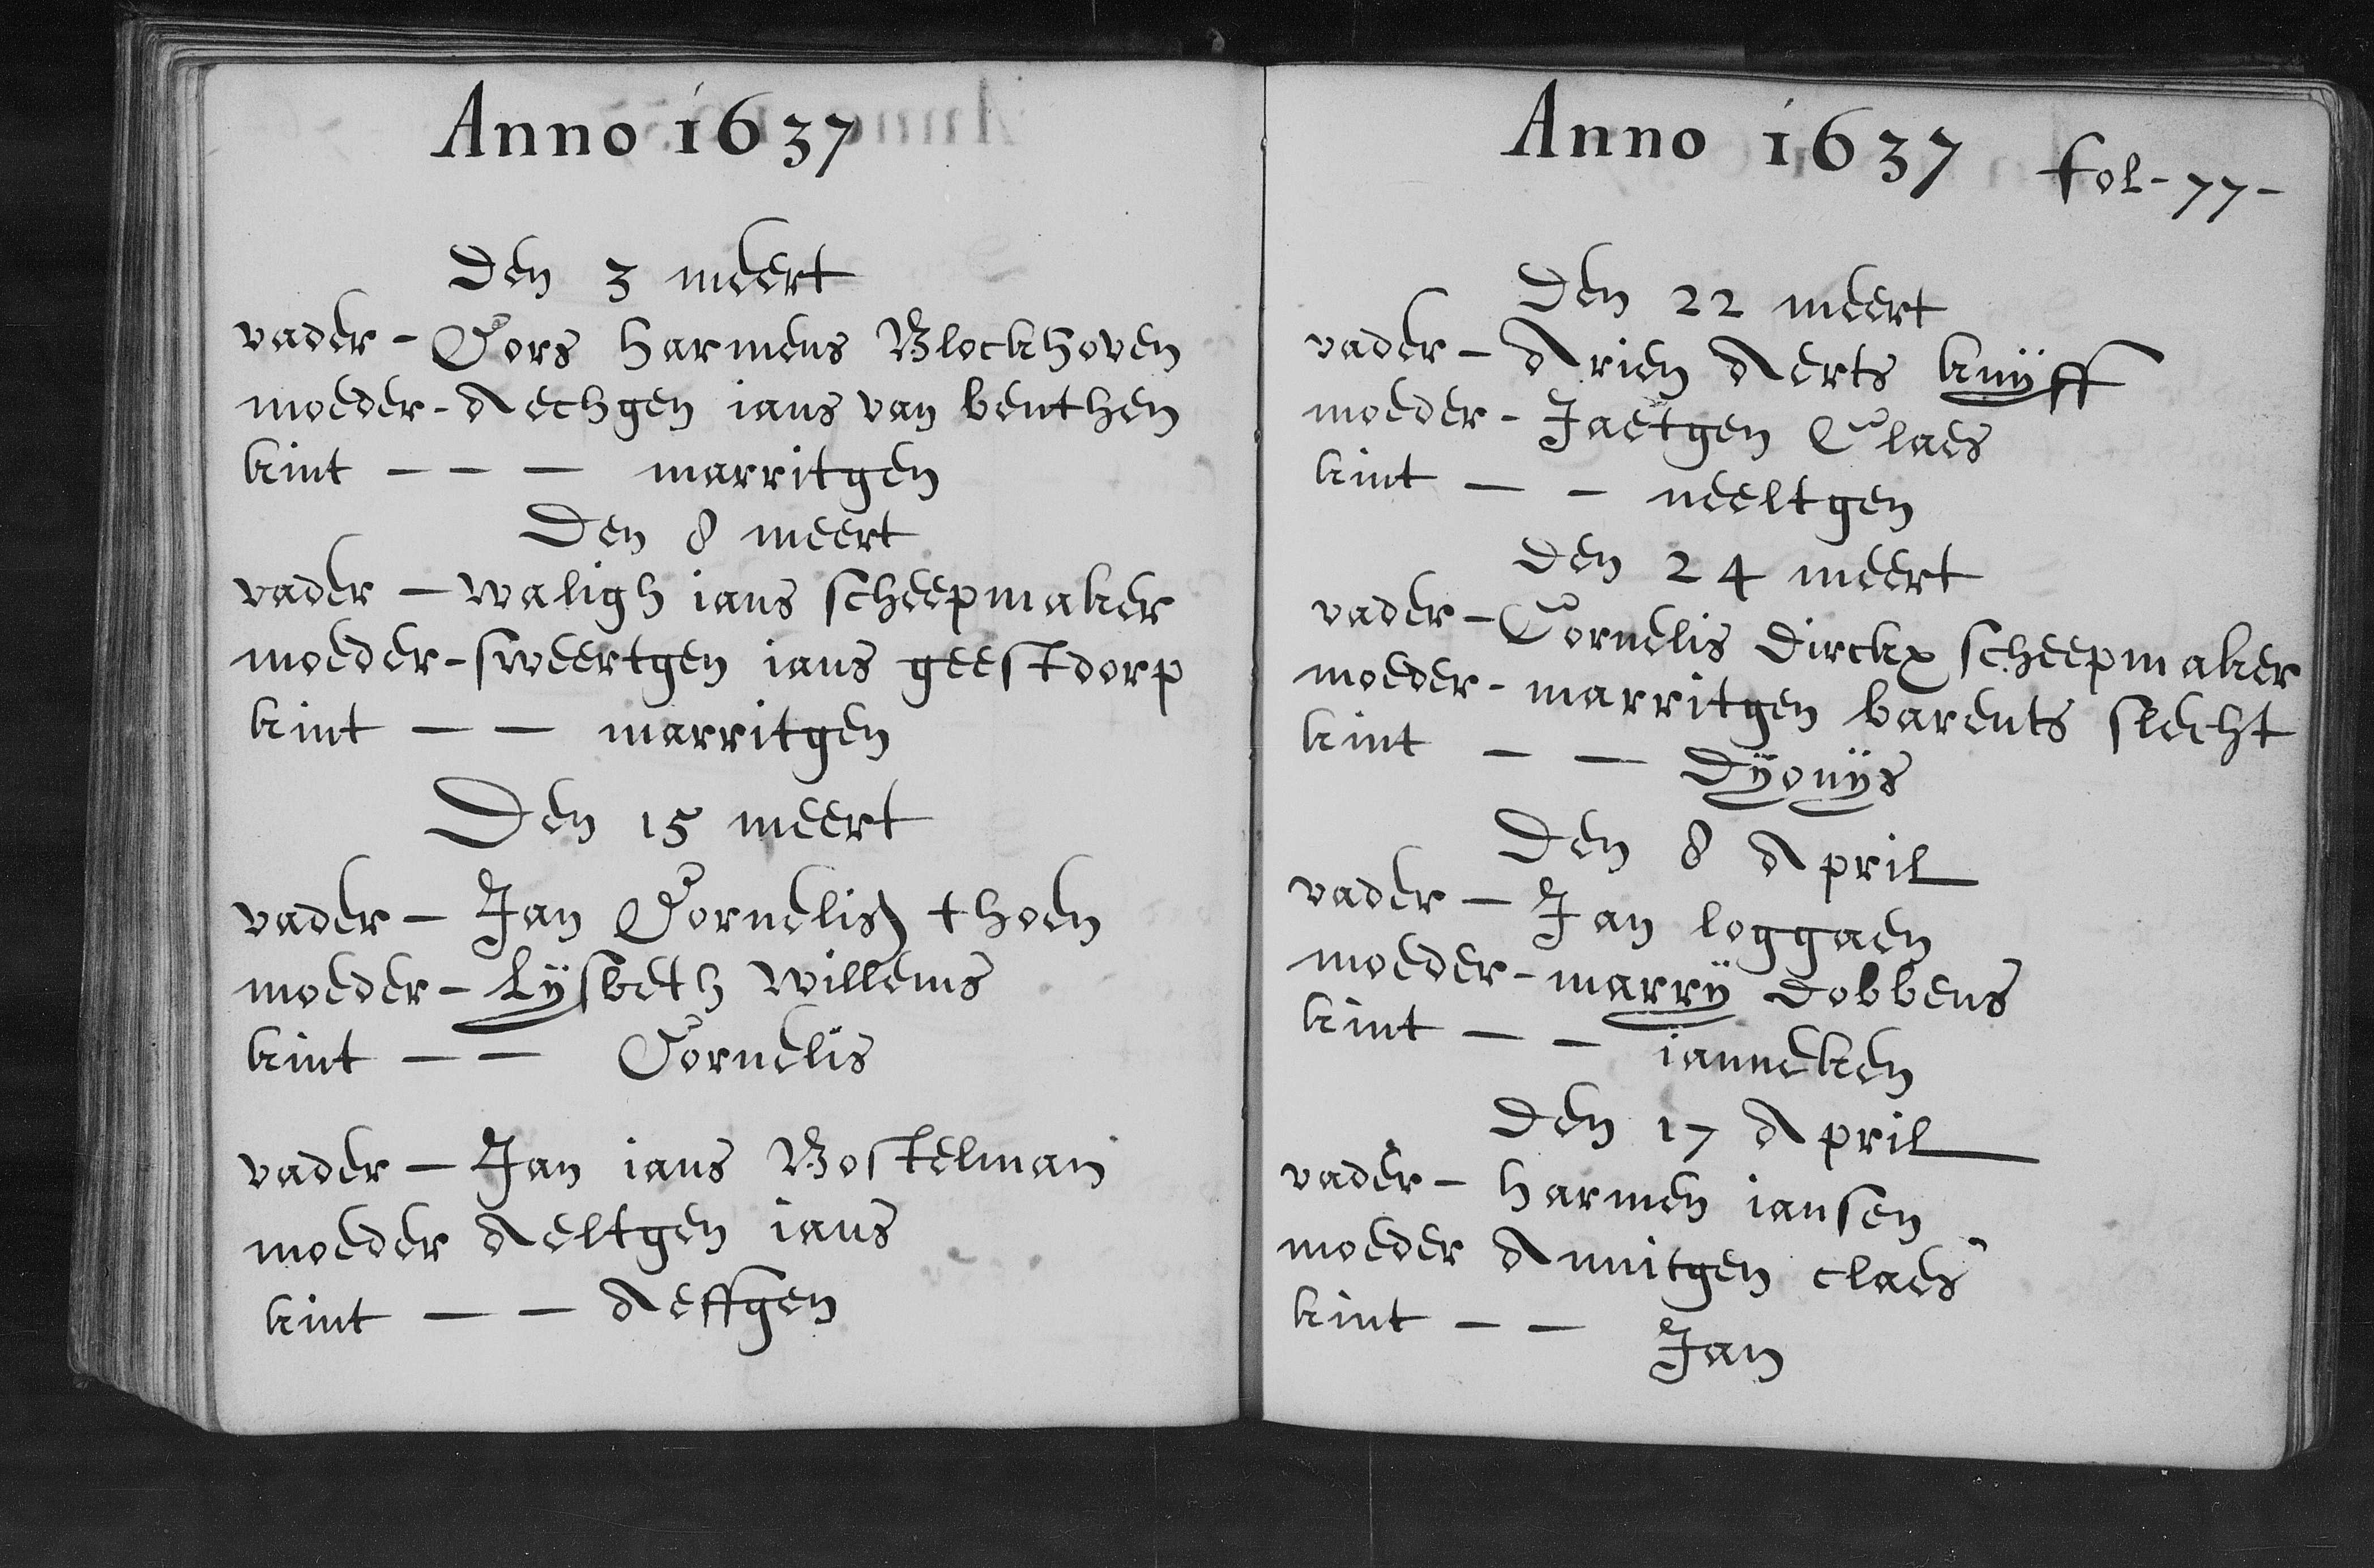 Anno 1637
Den 3 meert
vader - Cors harmens Blockhoven
moeder - Aechgen ians van benthen
kint - - - marritgen
Den 8 meert
vader - waligh ians scheepmaker
moeder - sweertgen ians geestdorp
kint - - marritgen
Den 15 meert
vader - Jan Cornelisz thoen
moeder - Lÿsbeth willems
kint - - Cornelis
vader - Jan ians Bostelman
moeder Aeltgen ians
kint - - Aeffgen
Anno 1637 fol - 77 -
Den 22 meert
vader - Arien Aerts knÿff
moeder - Jaetgen Claes
kint - - neeltgen
Den 24 meert
vader - Cornelis Dirckx scheepmaker
moeder - marritgen barents slecht
kint - - Dÿonÿs
Den 8 April
vader - Jan loggaen
moeder - marrÿ Dobbens
kint - - ianneken
Den 17 April
vader - harmen iansen
moeder Annitgen claes
kint - - Jan